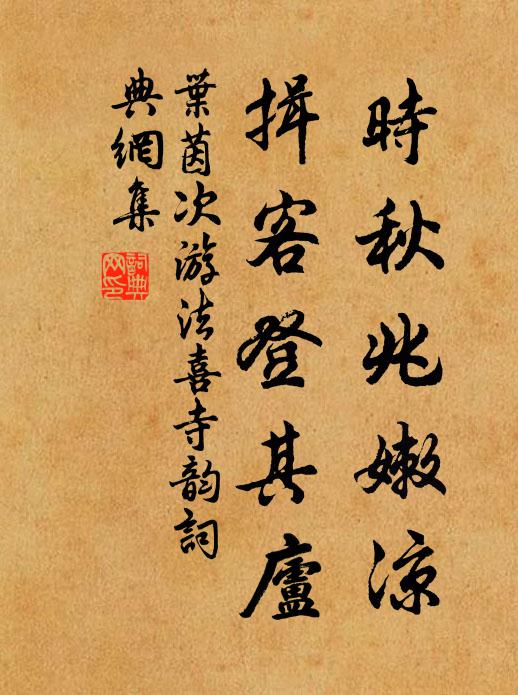 時秋兆嫩涼
揖客登其廬
葉茵次游法喜寺韵詞
典網集
詞典網印